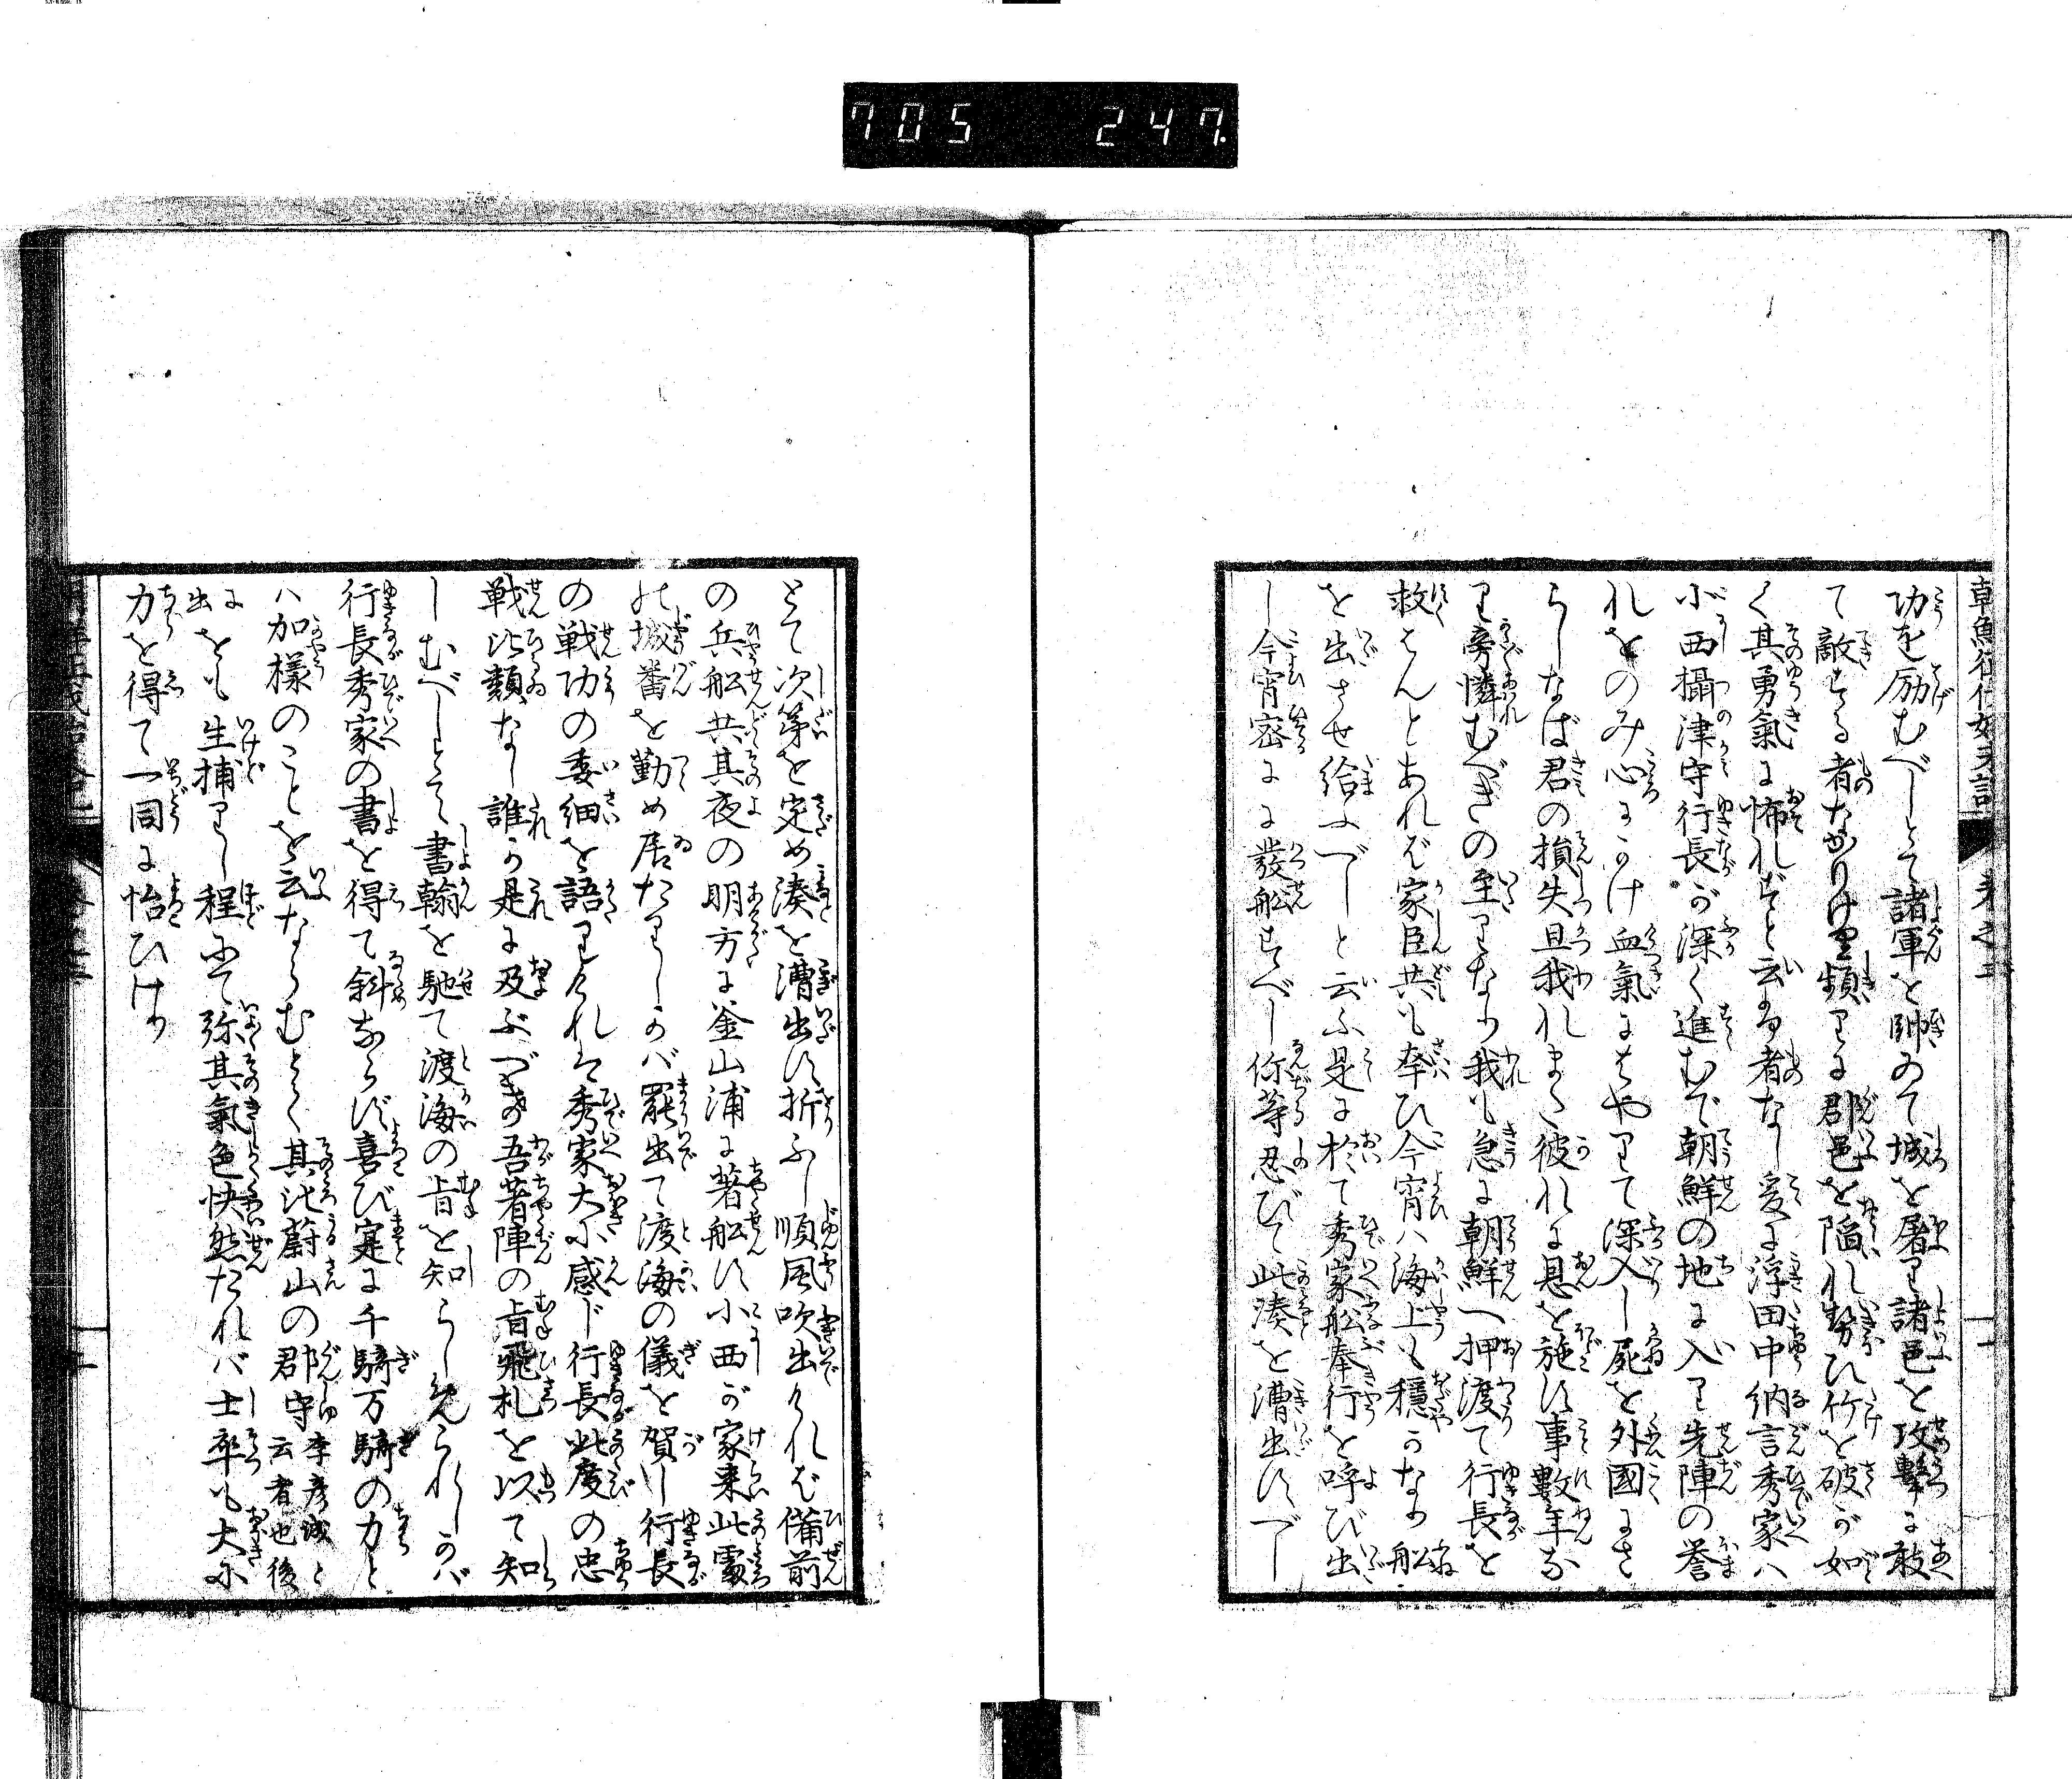 705 247
功を励むべしとて諸軍を帥ゐて城を屠り諸邑を攻撃に敢
て敵する者なかりけり頻りに郡邑を陥れ勢ひ竹を破が如
く其勇氣に怖れずと云ふ者なし爰に浮田中納言秀家ハ
小西攝津守行長が深く進むで朝鮮の地に入り先陣の誉
れをのみ心にかけ血氣にはやりて深入し屍を外國にさ
らしなば君の損失且我れまた彼れに恩を施す事數年な
り旁憐むべきの至りなり我も急に朝鮮へ押渡て行長を
救はんとあれば家臣共も奉ひ今宵ハ海上も穏かなり船
を出させ給ふべしと云ふ是に於て秀家船奉行を呼び出
し今宵密に發船すべし你等忍びて此湊を漕出すべし
とて次第を定め湊を漕出す折ふし順風吹出ければ備前
の兵船共其夜の明方に釜山浦に著船す小西が家来此處
の城番を勤め居たりしかバ罷出て渡海の儀を賀し行長
の戦功の委細を語りければ秀家大に感じ行長此度の忠
戦比類なし誰か是に及ぶべき吾著陣の旨飛札を以て知
しむべしとて書翰を馳て渡海の旨を知らしめられしかバ
行長秀家の書を得て斜ならず喜び寔に千騎万騎の力と
ハ加様のことを云ならむとて其比蔚山の郡守李彦誠と云者也後
に出をも生捕りし程にて弥其氣色快然たれバ士卒も大に
力を得て一同に怡ひけり